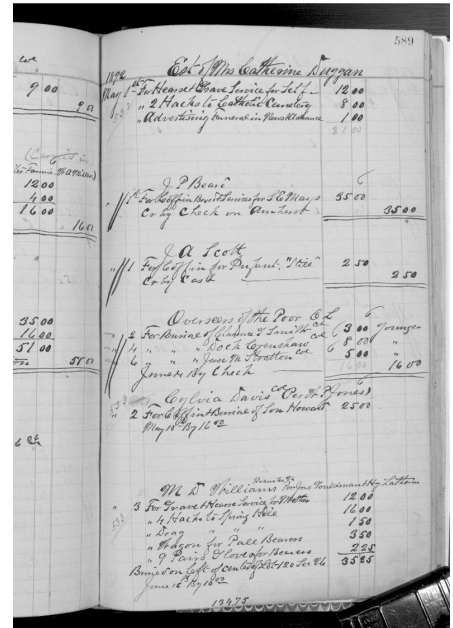 589
Est of Mrs Catherine Duggan
1892
May 1st For Hearse & Grave Service for Self 12 00
" 2 Hacks to Catholic Cemetery 8 00
" Advertising Funeral in News & Advance 1 00
21 00
J P Beard
" 1st For Coffin Box & Services for Mays 35 00
Cr by Check on Amherst 35 00
J A Scott
" 1 For Coffin for Infant 2 50
Cr by Cash 2 50
Overseers of the Poor
" 2 For Burial of Smith col 3 00 Younger
" 4 " " " Dock Crenshaw col 8 00 "
" 6 " " " June Stratton col 5 00 "
June 4 By Check 16 00 16 00
Sylvia Davis col (Per Jones)
533 " 2 For Coffin & Burial of Son Howard 25 00
May 18th By 16 00
M D Williams
533 " 3 For Grave & Hearse Service for Mother 12 00
" 4 Hacks to Spring Hill 16 00
" Dray " " " 1 50
" Wagon for Pall Bearers 3 50
" 9 Pairs Gloves for Bearers 2 25
Buried on left of center of Lot 120 Sec 26 35 25
June
13475
9 00
9 00
12 00
4 00
16 00
16 00
35 00
16 00
51 00
51 00